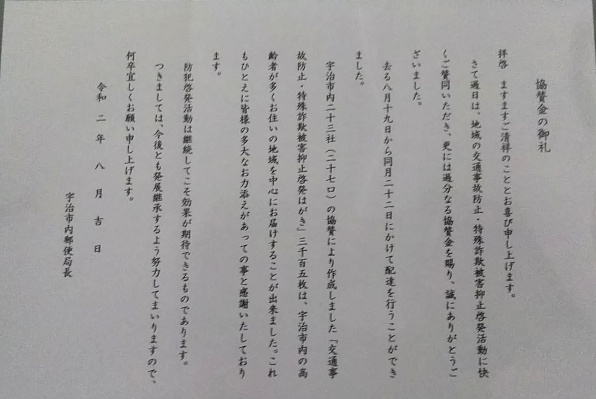 協賛金の御礼
拝啓　ますますご清祥のこととお喜び申し上げます。
さて過日は、地域の交通事故防止・特殊詐欺被害抑止啓発活動に快
くご賛同いただき、更には過分なる協賛金を賜り、誠にありがとうご
ざいました。
去る八月十九日から同月二十二日にかけて配達を行うことができ
ました。
宇治市内二十三社（二十七口）の協賛により作成しました「交通事
故防止・特殊詐欺被害抑止啓発はがき」三千百五枚は、宇治市内の高
齢者が多くお住いの地域を中心にお届けすることが出来ました。これ
もひとえに皆様の多大なお力添えがあっての事と感謝いたしており
ます。
防犯啓発活動は継続してこそ効果が期待できるものであります。
つきましては、今後とも発展継承するよう努力してまいりますので、
何卒宜しくお願い申し上げます。
令和二年八月吉日
宇治市内郵便局長